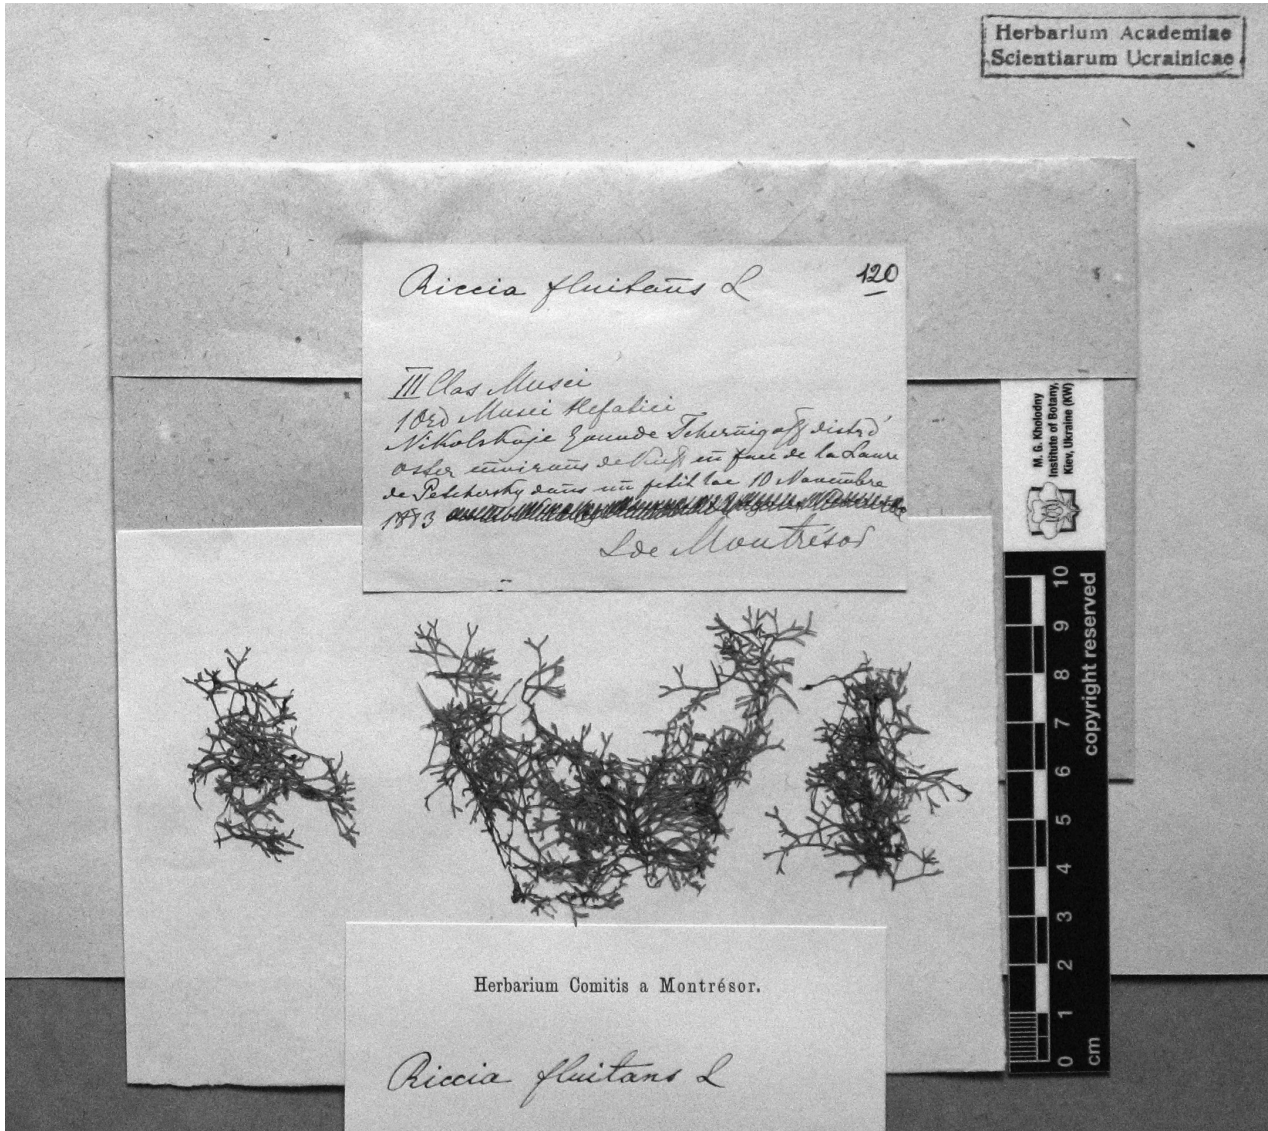 Herbarium Academiae
Scientiarum Ucrainicae
Riccia fluitans L
120
III Clas Musci
1 Ord Musci Hepatici
Nikolskoje Gouv de Tchernigoff distr
Oster environs de Kieff en face de la Laure
de Petchersky dans un petit lac 10 Novembre
1883
L de Montrésor
M. G. Kholodny
Institute of Botany,
Kiev, Ukraine (KW)
10
9
8
7
6
5
4
3
2
1
0
cm
copyright reserved
Herbarium Comitis a Montrésor.
Riccia fluitans L